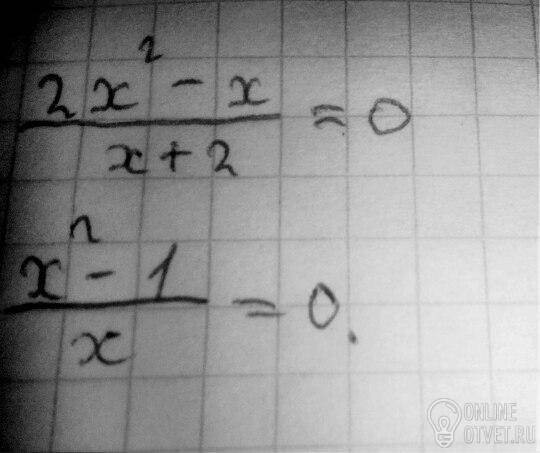 2x² - x
x + 2
= 0
x² - 1
x
= 0.
ONLINE
OTVET.RU